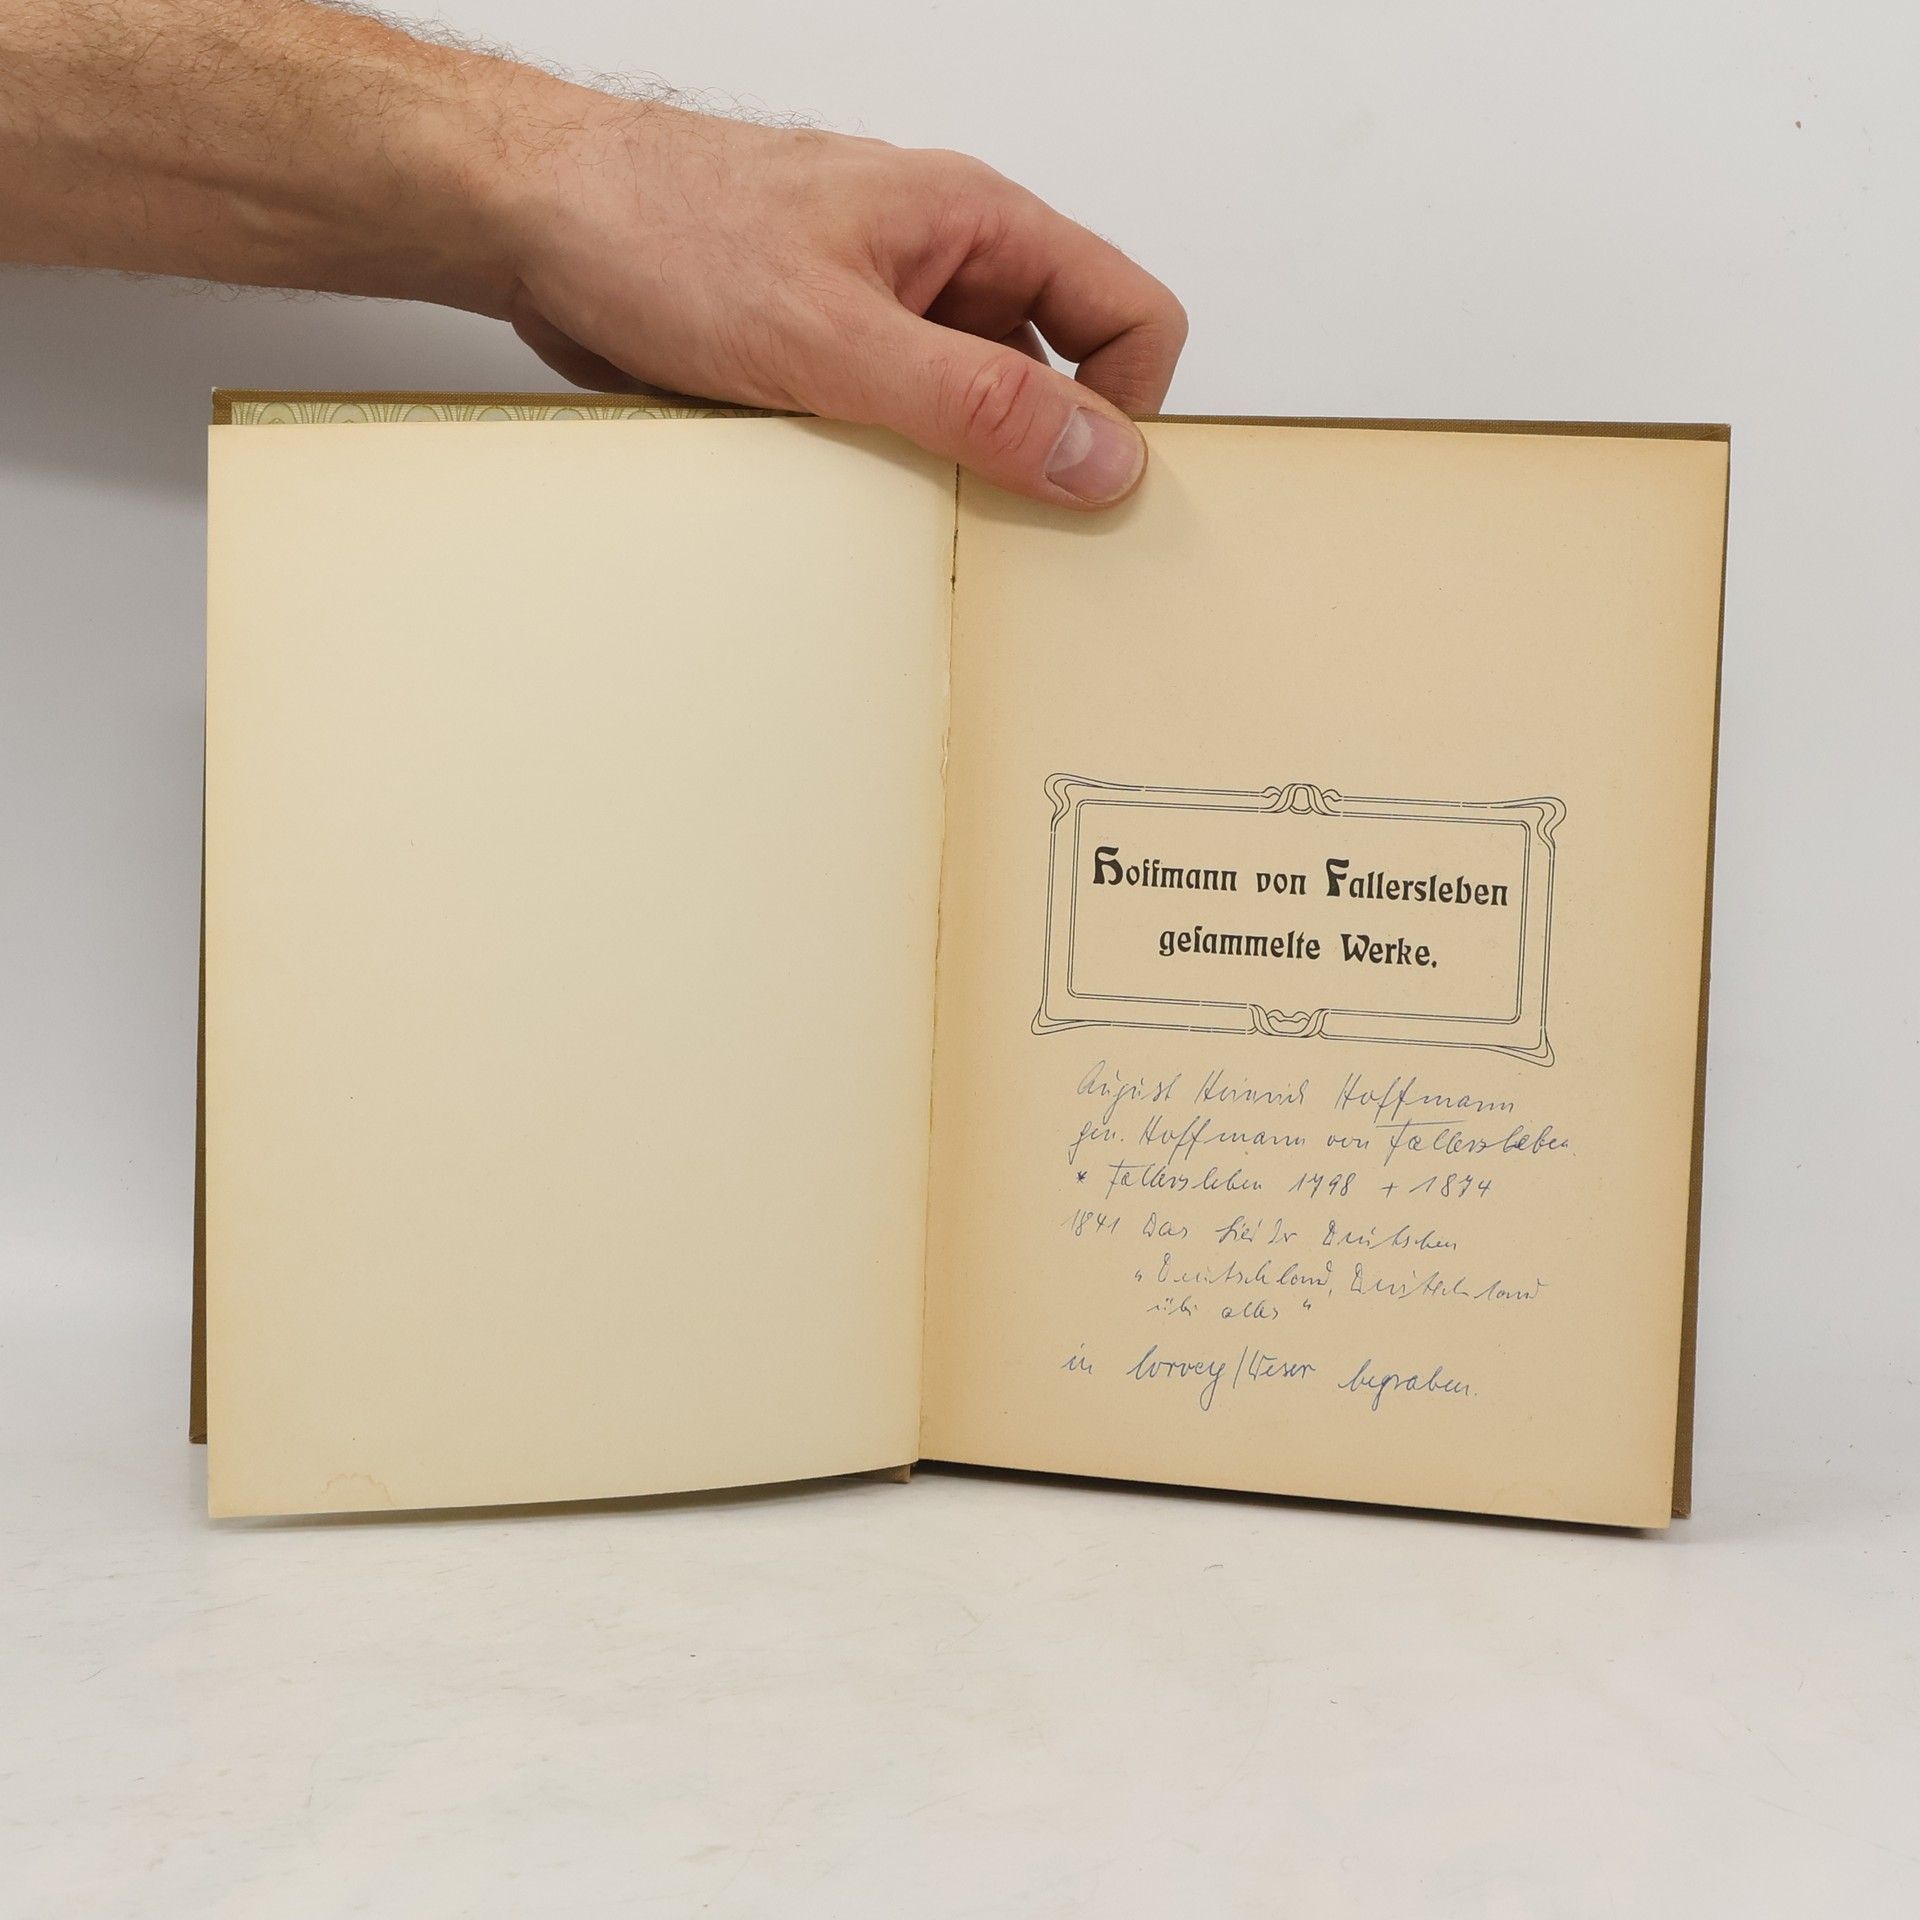 Hoffmann von Fallersleben
geſammelte Werke.
August Heinrich Hoffmann
gen. Hoffmann von Fallersleben.
* Fallersleben 1798 + 1874
1841 Das Lied der Deutschen
"Deutschland, Deutschland
über alles"
in Corvey/Weser begraben.